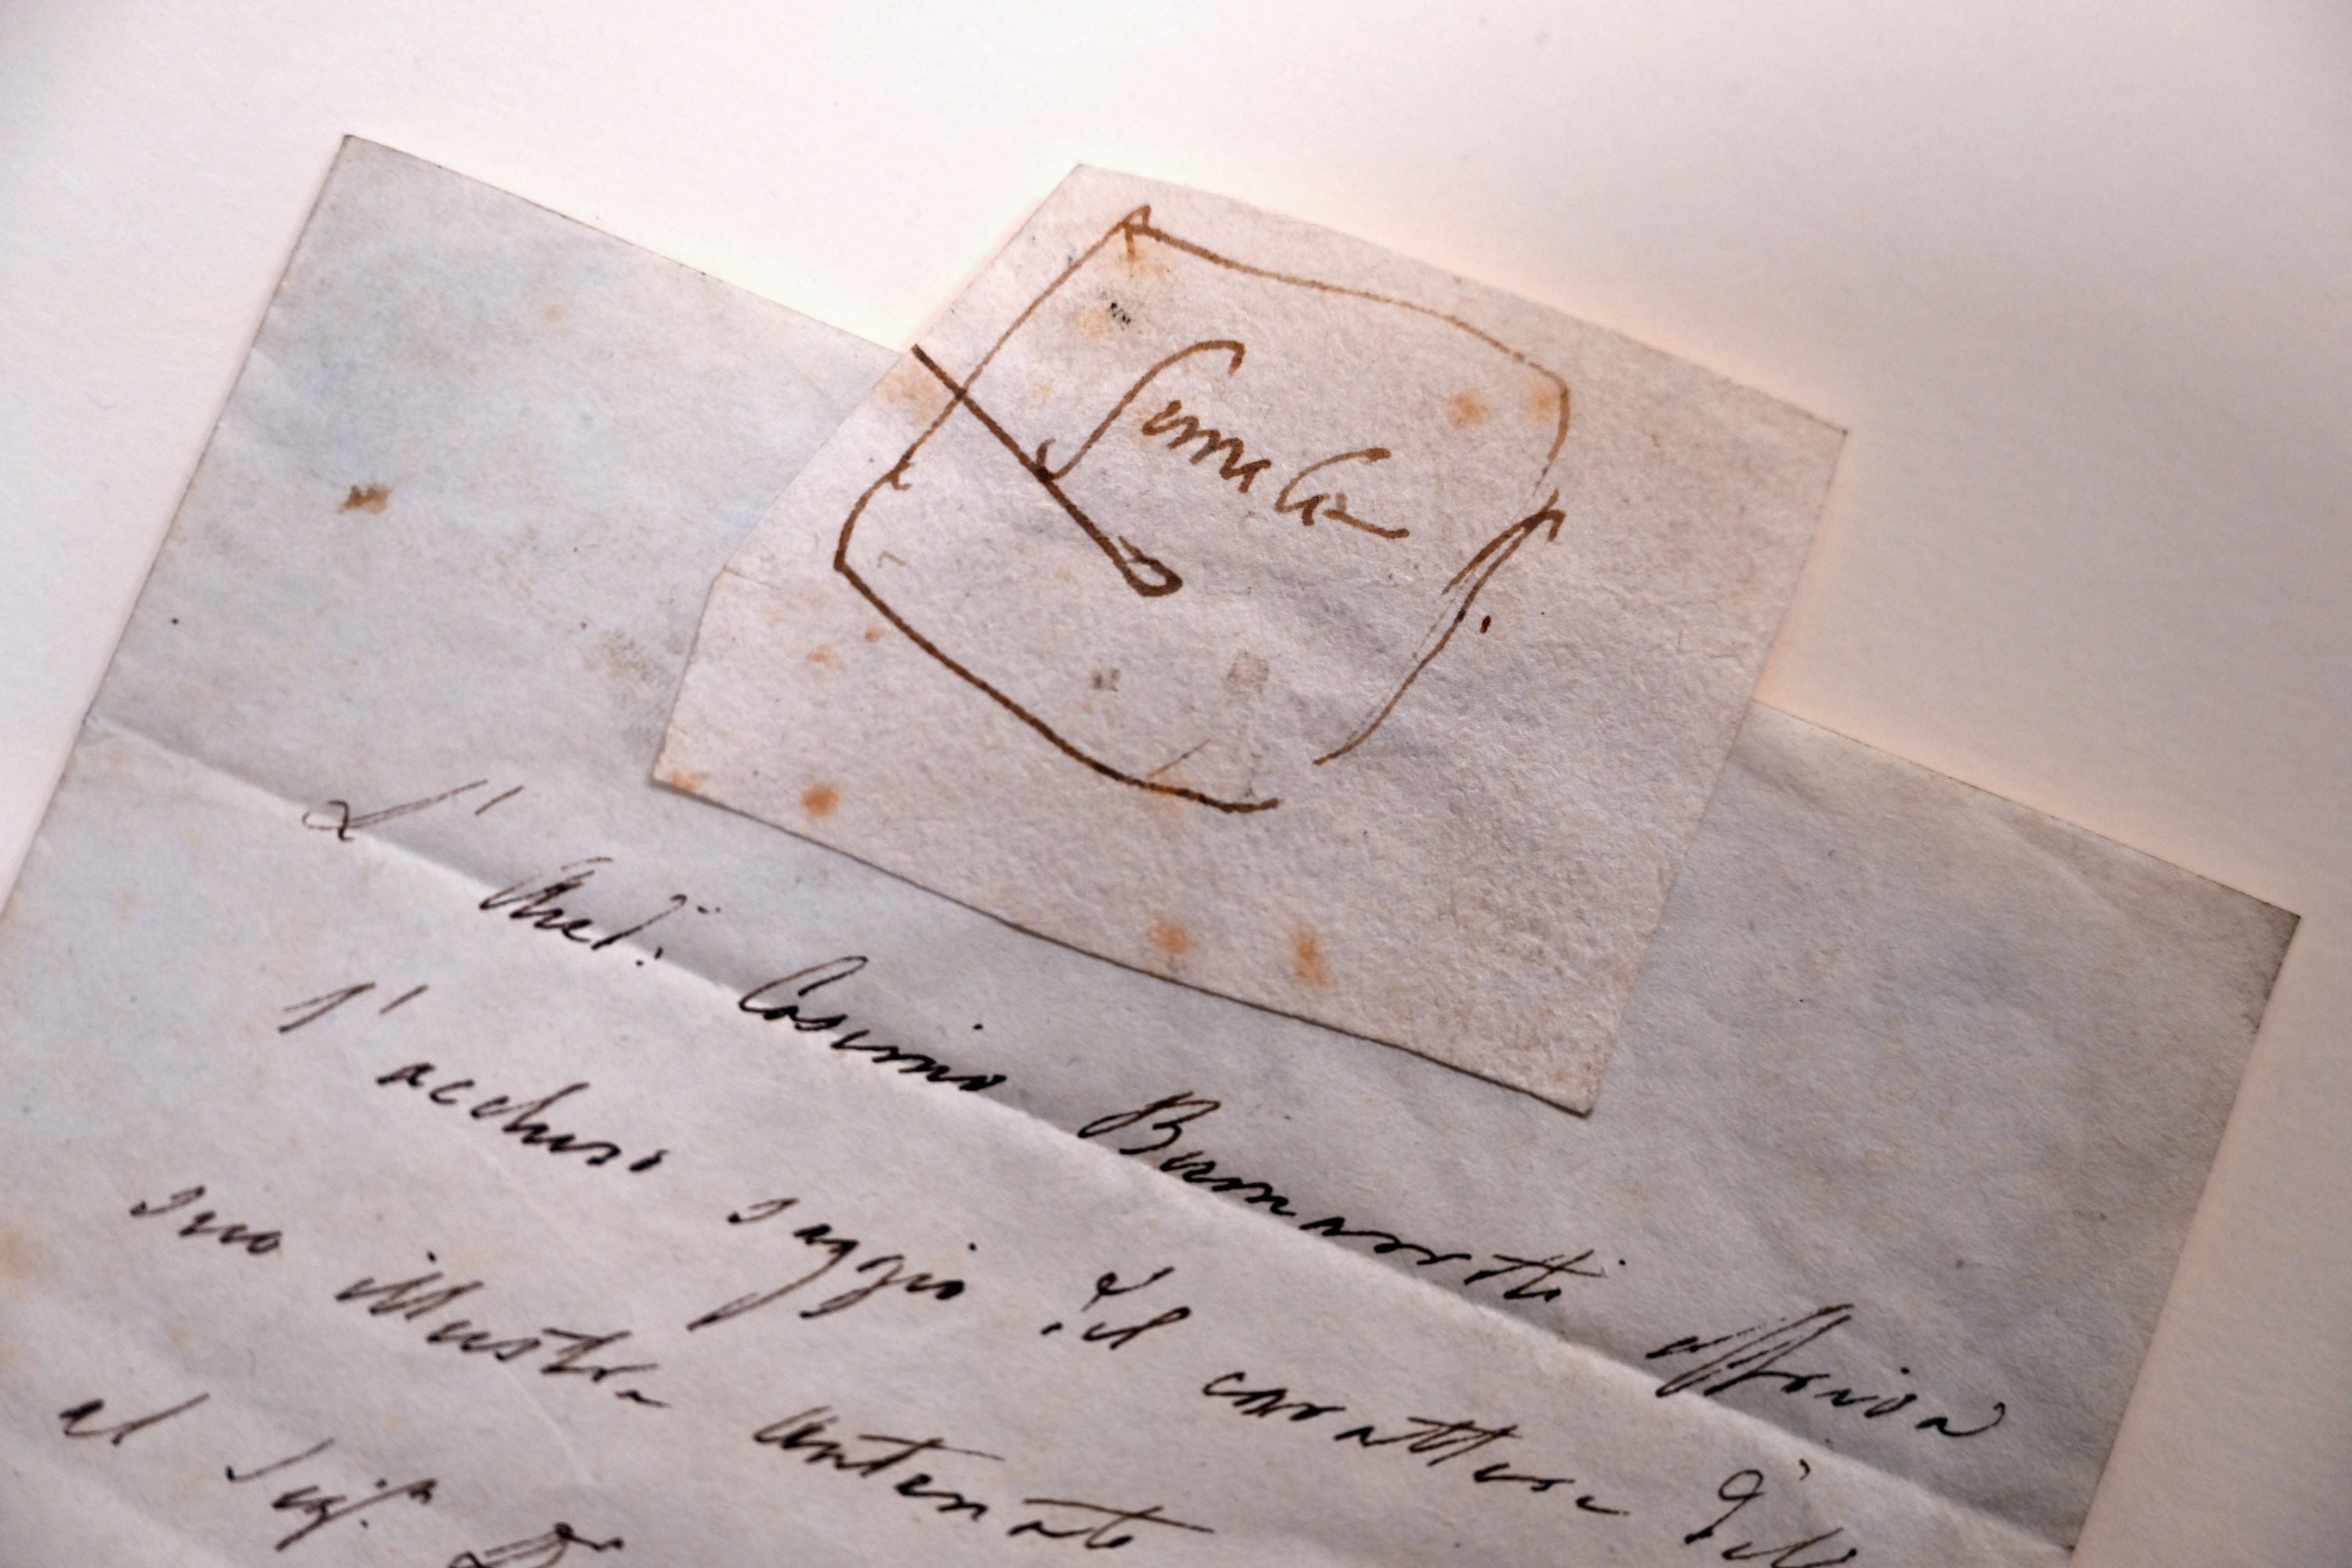 simile
L' Aud.re Cosimo Buonarroti offriva
l' accluso saggio del carattere del
suo illustre antenato
al Sig.r